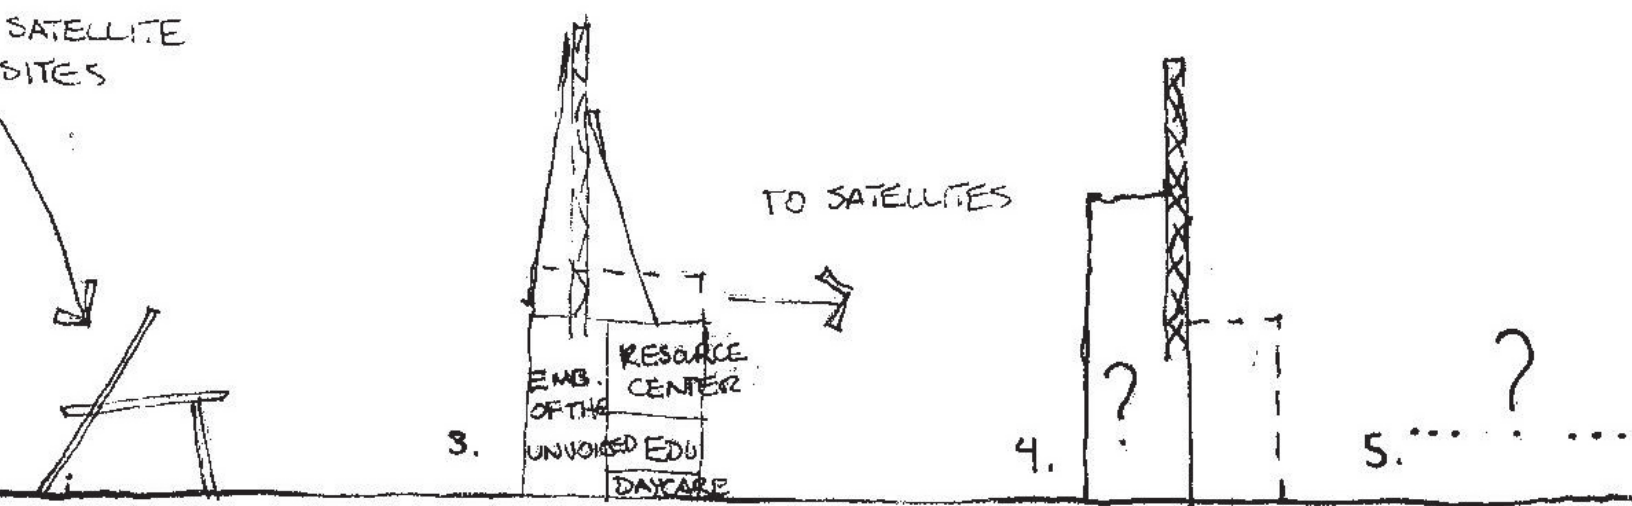 SATELLITE
SITES
TO SATELLITES
3.
EMB.
OF THE
UNVOICED
RESOURCE
CENTER
EDU
DAYCARE
4.
?
5.
?